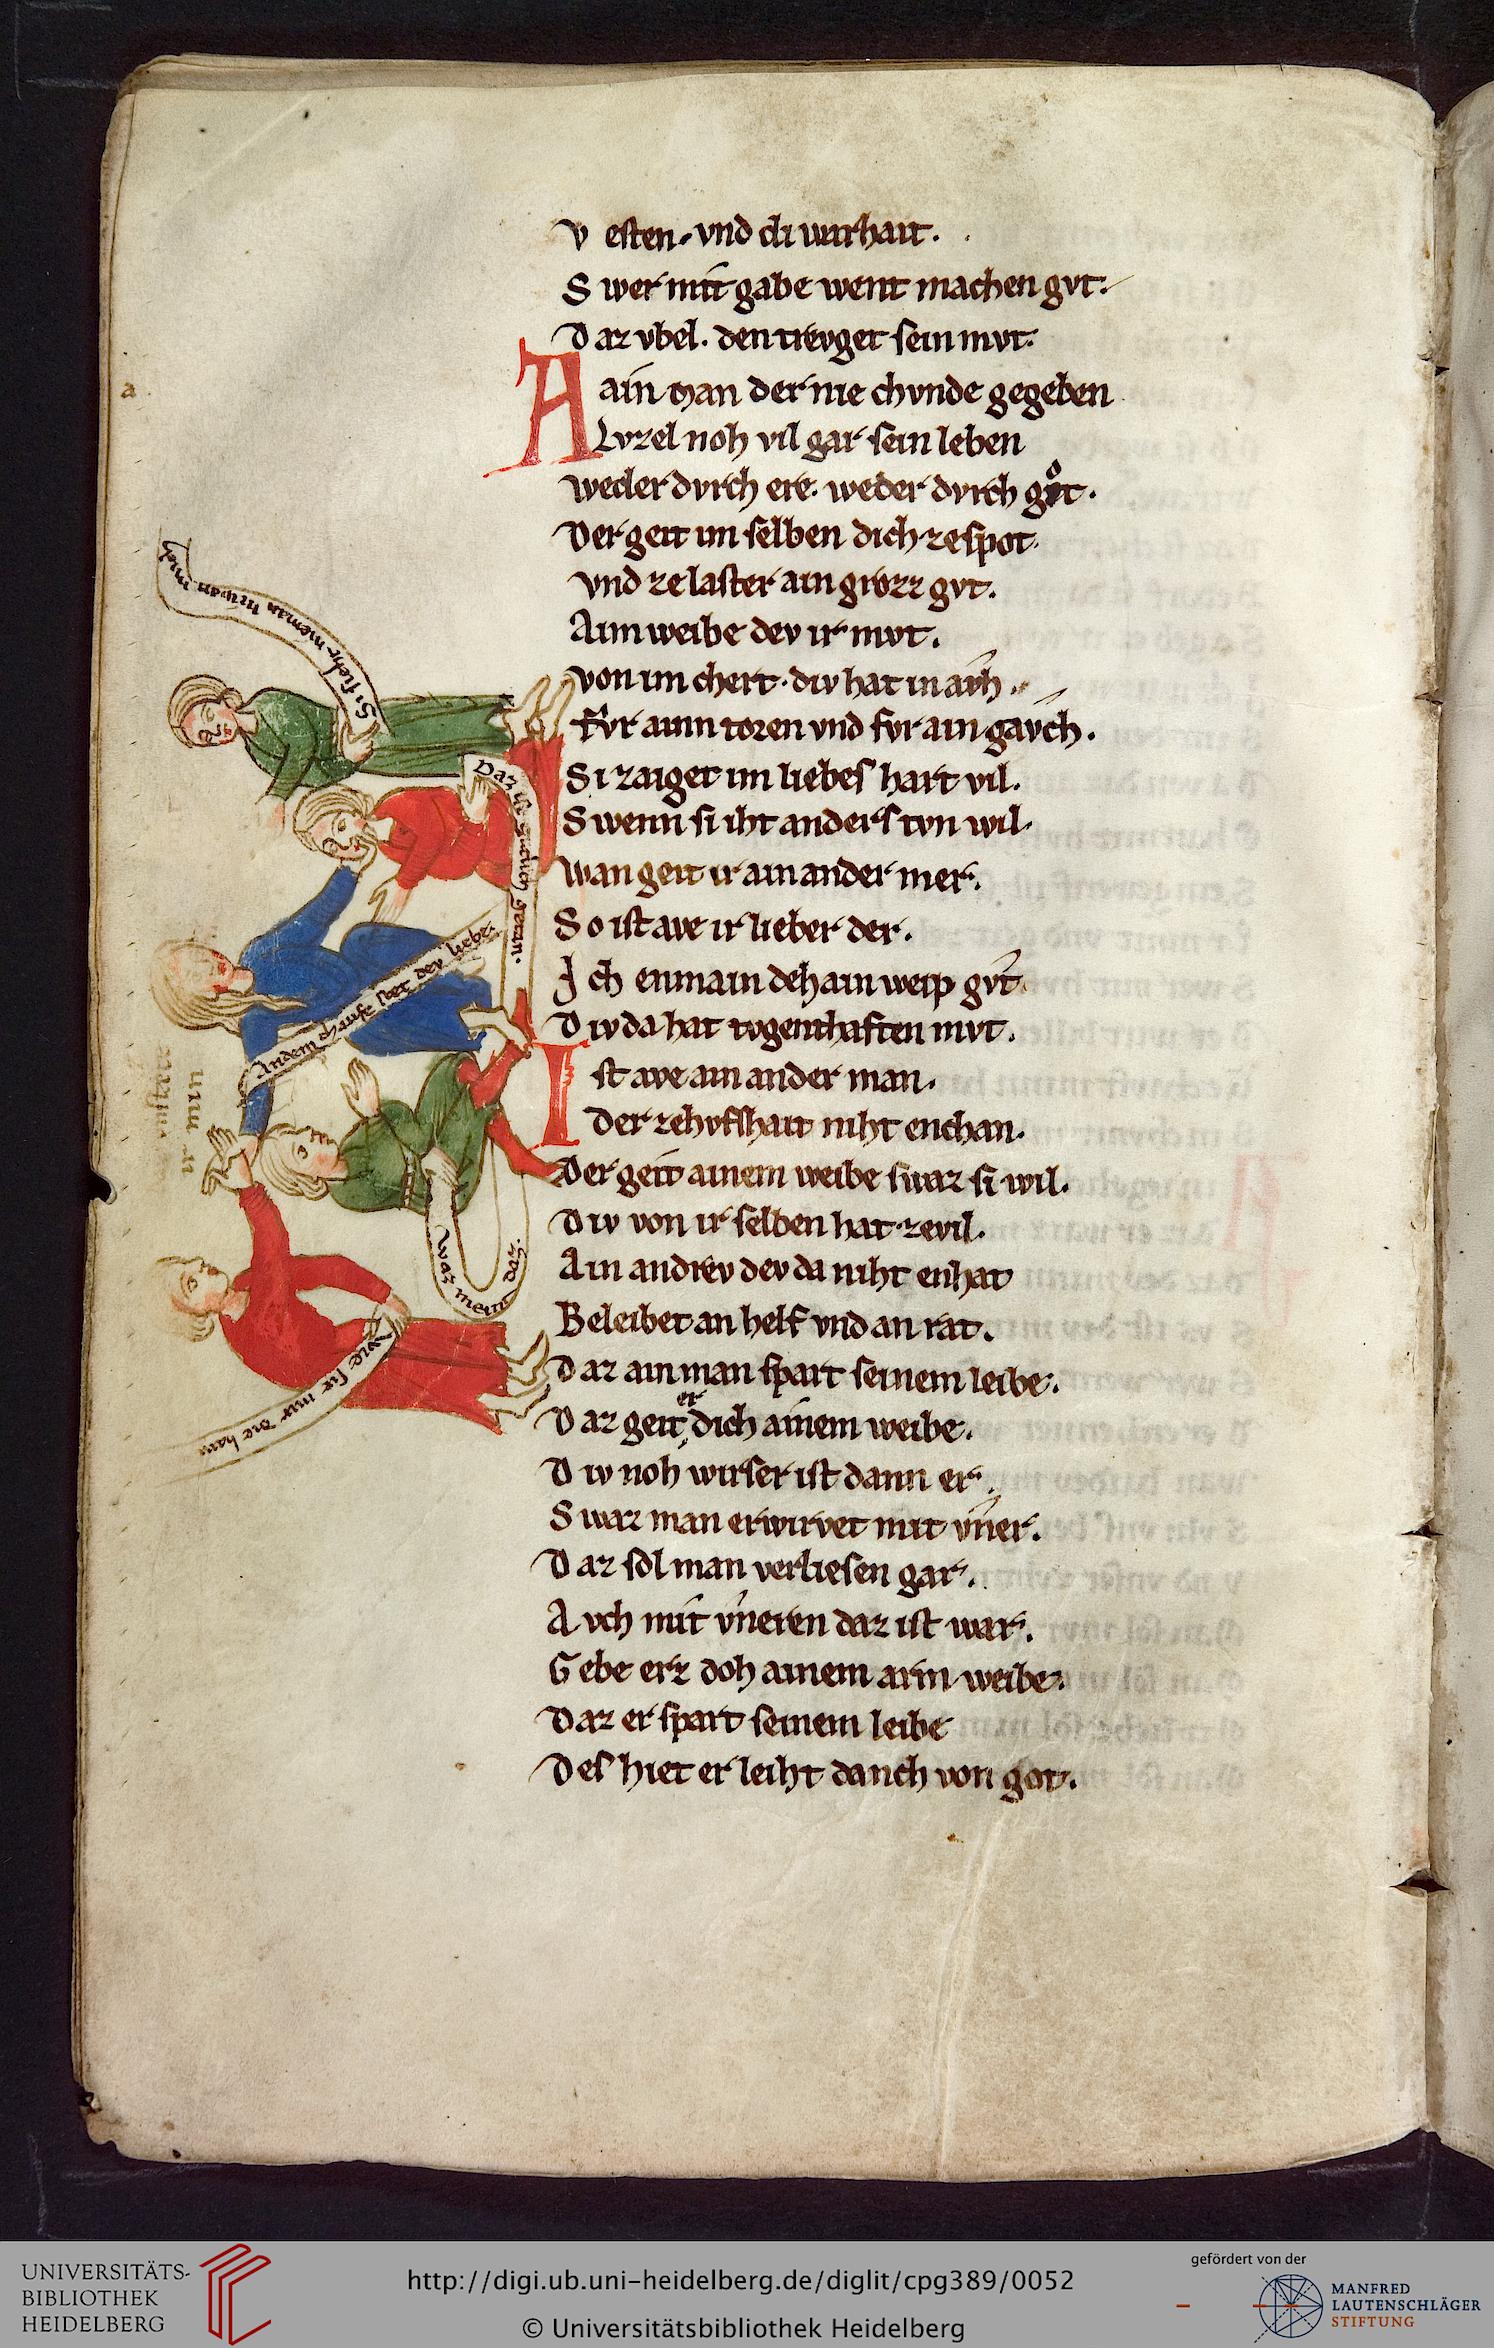 V esten. vnd di warhait.
S wer mit gabe went machen gvt.
D az vbel. den trevget sein mvt.
A ain man der nie chvnde gegeben
Lvzel noh vil gar sein leben
weder dvrch ere. weder dvrch got.
Der geit im selben dich ze spot.
vnd ze laster ain grozz gvt.
Aim weibe dev ir mvt.
von im chert. div hat in avch.
Fvr ainn toren vnd fvr ain gavch.
S i zaiget im liebes hart vil.
S wenn si iht anders tvn wil.
wan geit ir ain ander mer.
S o ist ave ir lieber der.
I ch enmain dehain weip gvt
D iv da hat tvgenthaften mvt.
I st ave ain ander man.
der ze hvfshait niht enchan.
Der geit ainem weibe swaz si wil.
D iv von ir selben hat ze vil.
A in andrev dev da niht enhat
Beleibet an helf vnd an rat.
D az ain man spart seinem leibe.
D az geit er dich ainem weibe.
D iv noh wirser ist dann er.
S waz man erwirvet mit vner.
D az sol man verliesen gar.
A vch mit vneren daz ist war.
G ebe erz doh ainem arm weibe.
D az er spart seinem leibe
D es hiet er leiht danch von got.
a
Si sieht nieman niwan mich
Daz ist gvtlich getan.
Andem chaufe stet dev liebe.
waz meint daz.
wie sie mir die hant
UNIVERSITÄTS-
BIBLIOTHEK
HEIDELBERG
http://digi.ub.uni-heidelberg.de/diglit/cpg389/0052
© Universitätsbibliothek Heidelberg
gefördert von der
MANFRED
LAUTENSCHLÄGER
STIFTUNG